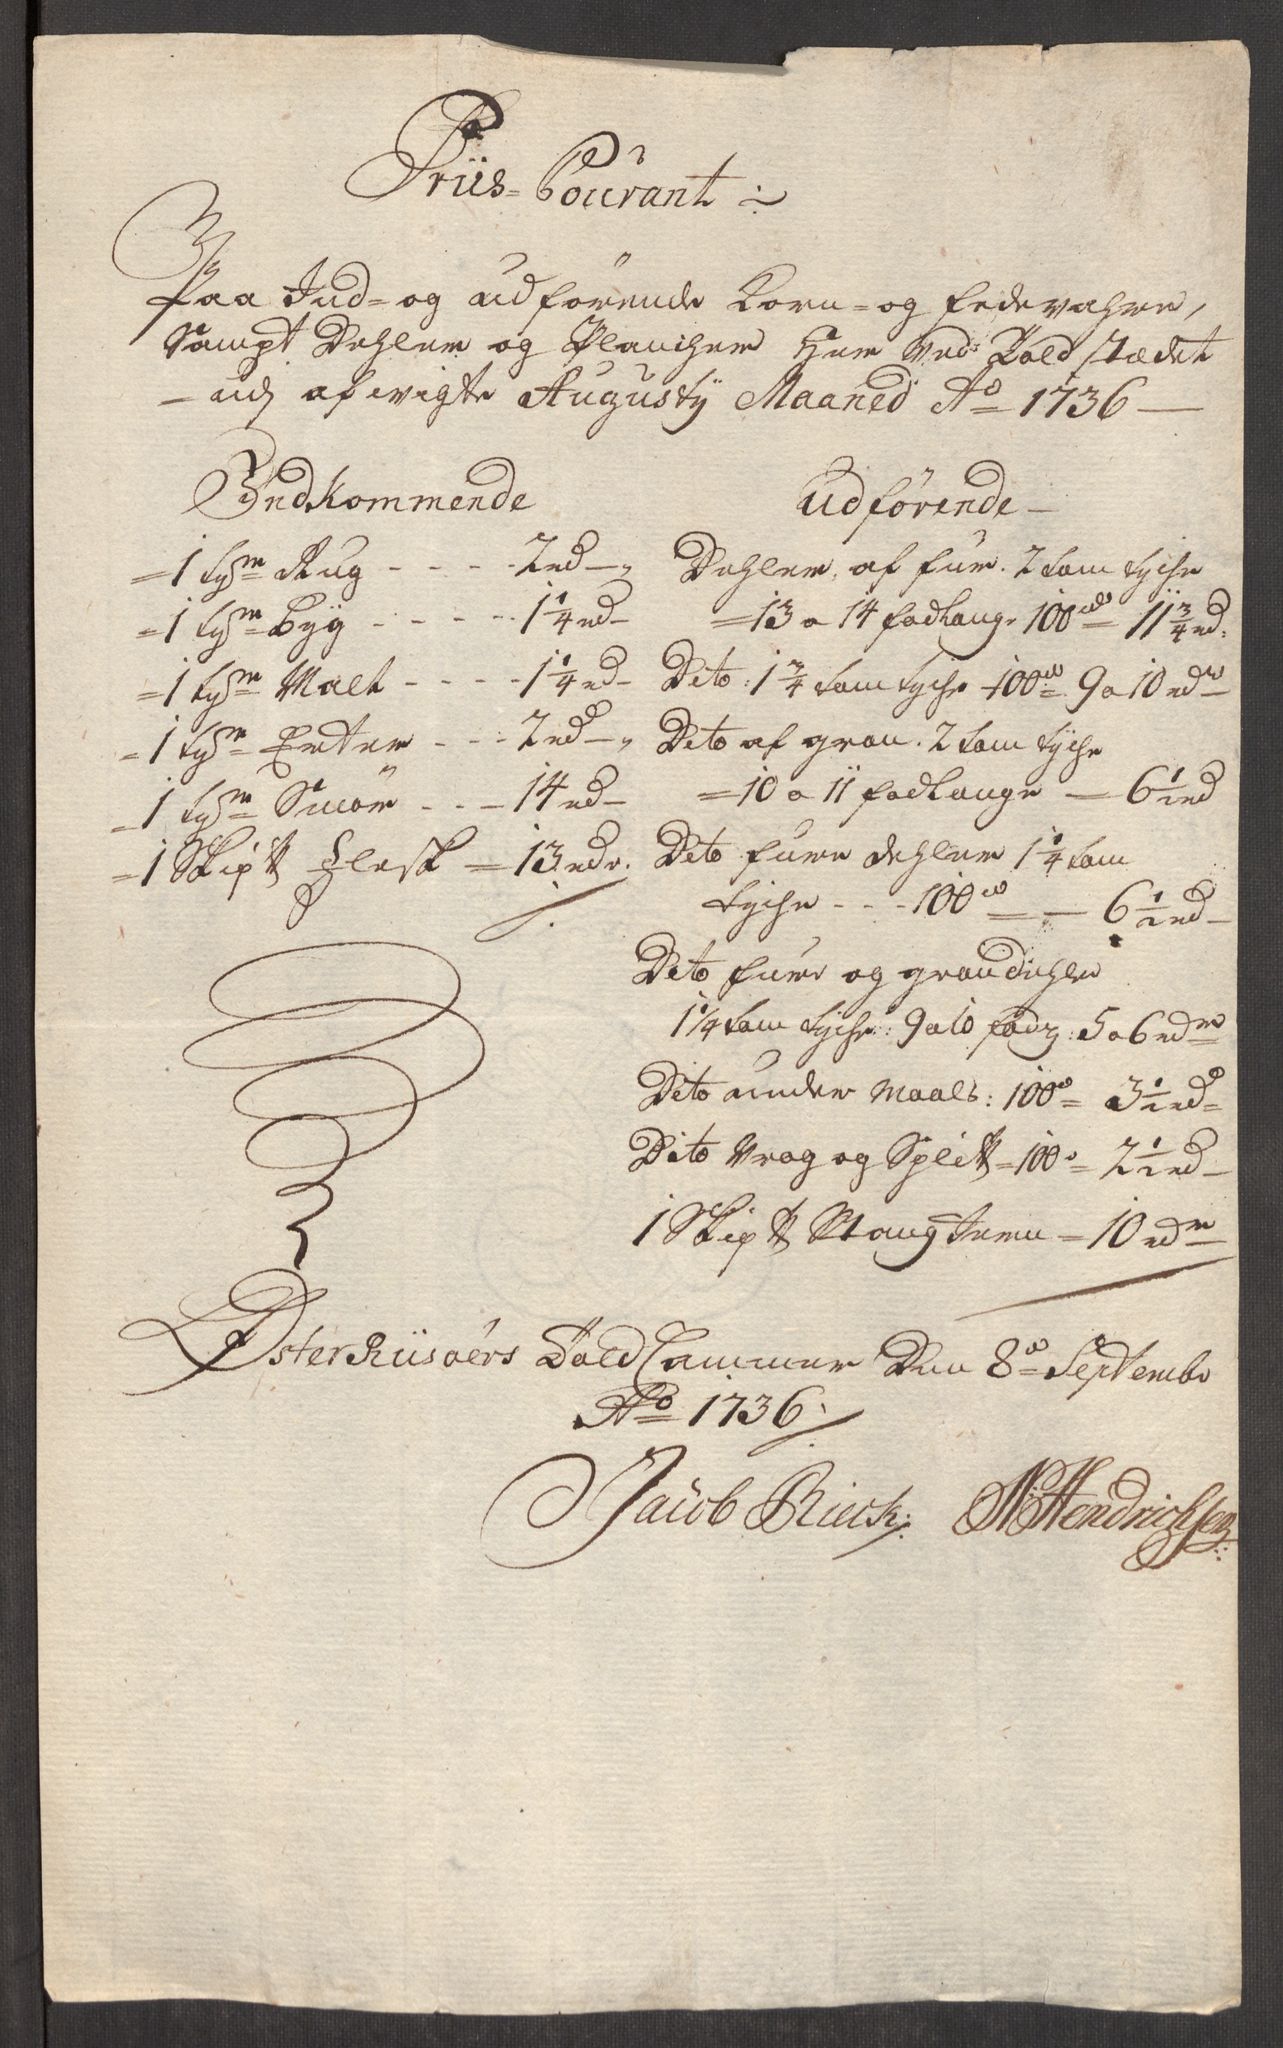 Priis-Courant
Paa Ind- og udførende Korn- og fedevahre,
Sampt Dehler og Plancher her ved Told Stædet
udj afvigte Augusty Maaned Ao 1736
Indkommende
1 tr Rug - - - - 2 rd
1 tr Byg - - - - 1 1/4 rd
1 tr Malt - - - - 1 1/4 rd
1 tr Erter - - - 2 rd
1 tr Smør - - - 14 rd
1 Skip ℔ Flesk = 13 rdr.
Udførende
Dehler af fur. 2 tom tyche
13 a 14 fod lange 100de 11 3/4 rd.
Dito 1 3/4 tom tyche 100de 9 a 10 rdr
Dito af gran. 2 tom tyche
10 a 11 fod lange 6 1/2 rd
Dito fure dehler 1 1/4 tom
tyche - - - 100de 6 1/2 rd
Dito fure og gran dehle
1 1/4 tom tyche: 9 a 10 fod: 5 a 6 rdr
Dito under Maals: 100de 3 1/2 rd
Dito Vrag og Split 100de 2 1/2 rd
1 Skip ℔ Stang Jern = 10 rdr
Øster Riisøers Told Cammer Den 8de Septembr
Ao 1736
Jacob Rieck: N: Hendrichsen